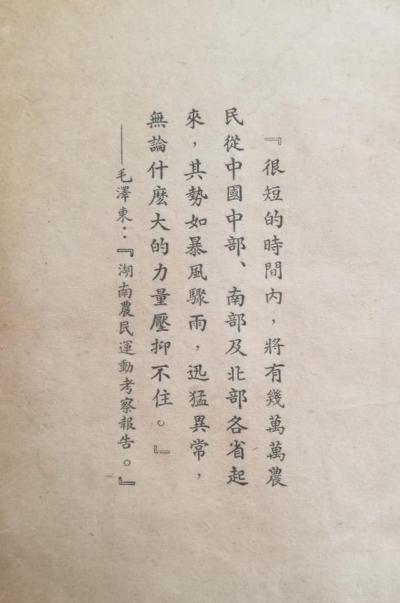 『很短的時間內，將有幾萬萬農
民從中國中部、南部及北部各省起
來，其勢如暴風驟雨，迅猛異常，
無論什麽大的力量壓抑不住。』
——毛澤東：『湖南農民運動考察報告。』